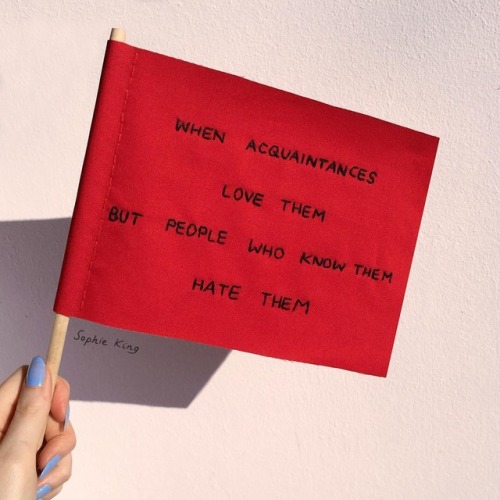 WHEN ACQUAINTANCES
LOVE THEM
BUT PEOPLE WHO KNOW THEM
HATE THEM
Sophie King